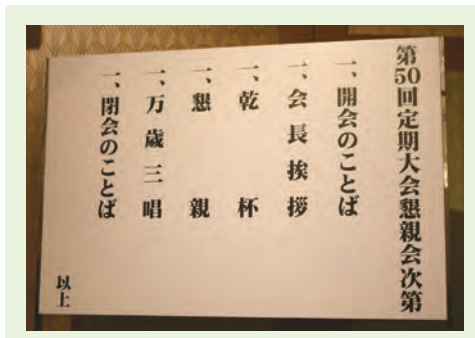 第50回定期大会懇親会次第
一、開会のことば
一、会長挨拶
一、乾杯
一、懇親
一、万歳三唱
一、閉会のことば
以上